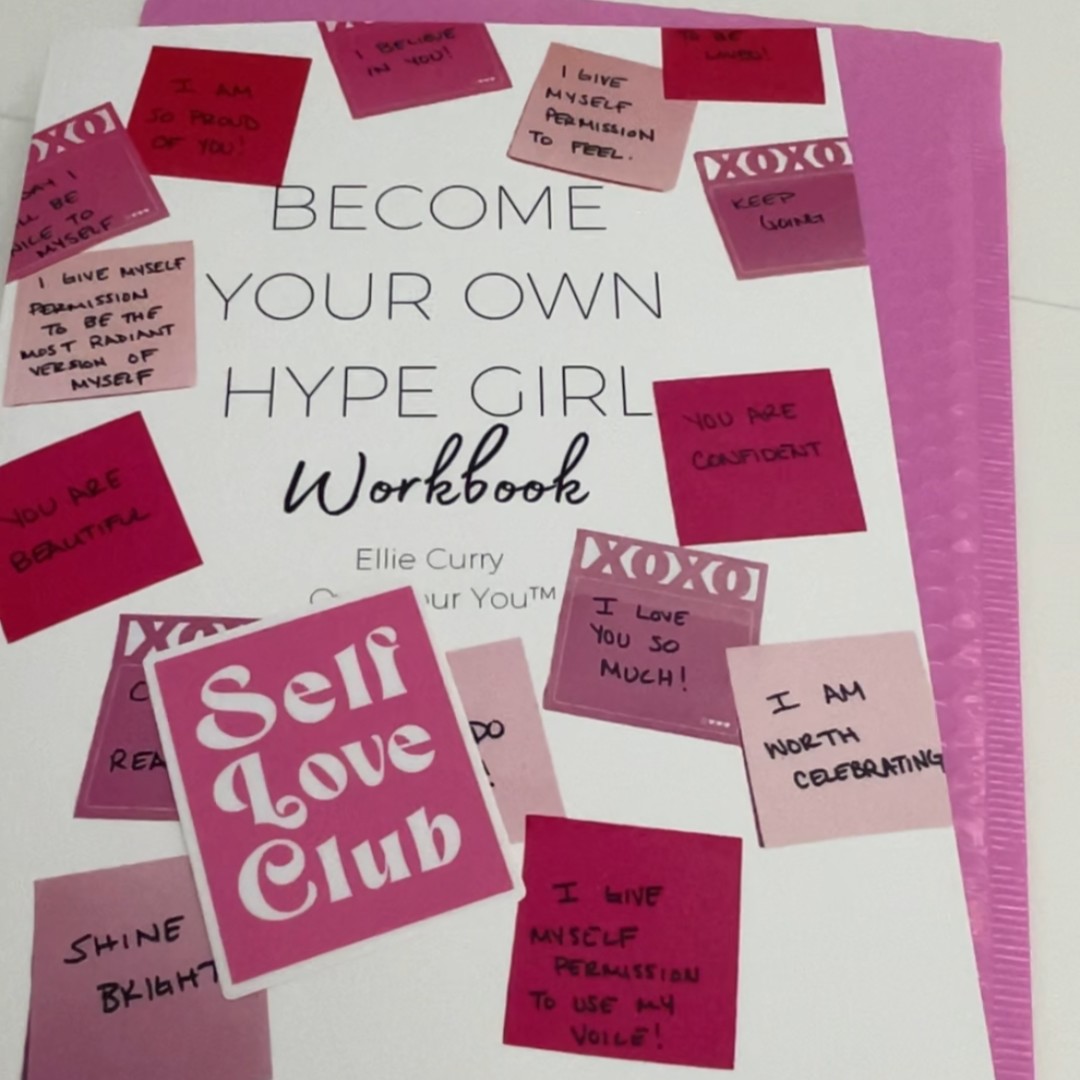 I BELIEVE
IN YOU!
I AM
SO PROUD
OF YOU!
I GIVE
MYSELF
PERMISSION
TO FEEL.
TO BE
LOVED!
XOXO
I
BE
NICE TO
MYSELF
XOXO
KEEP
GOING
I GIVE MYSELF
PERMISSION
TO BE THE
MOST RADIANT
VERSION OF
MYSELF
BECOME
YOUR OWN
HYPE GIRL
Workbook
Ellie Curry
ur You™
YOU ARE
CONFIDENT
YOU ARE
BEAUTIFUL
XOXO
I LOVE
YOU SO
MUCH!
XO
C
REA
Self
Love
Club
DO
!
I AM
WORTH
CELEBRATING
SHINE
BRIGHT
I GIVE
MYSELF
PERMISSION
TO USE MY
VOICE!